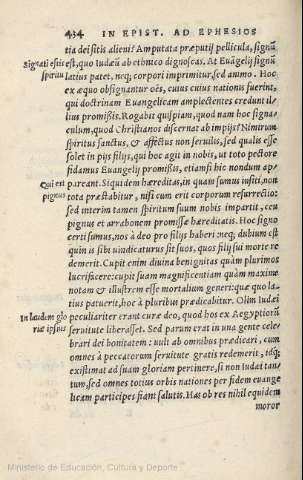 434 IN EPIST. AD EPHESIOS
tia dei sitis alieni? Amputata præputij pellicula, signũ
Signati estis est, quo Iudæũ ab ethnico dignoscas. At Euãgelij signũ
spiritu latius patet, neq; corpori imprimitur, sed animo. Hoc
ex æquo obsignantur oẽs, cuius cuius nationis fuerint,
qui doctrinam Euangelicam amplectentes credunt il-
lius promissis. Rogabit quispiam, quod nam hoc signa-
culum, quod Christianos discernat ab impijs? Nimirum
spiritus sanctus, & affectus non seruilis, sed qualis esse
solet in pijs filijs, qui hoc agit in nobis, ut toto pectore
fidamus Euangelij promissis, etiamsi hic nondum ap-
Qui est pareant. Siquidem hæreditas, in quam sumus insiti, non
pignus tota præstabitur, nisi cum erit corporum resurrectio:
sed interim tamen spiritum suum nobis impartit, ceu
pignus et arrabonem promissæ hæreditatis. Hoc signo
certi sumus, nos à deo pro filijs haberi: neq; dubium est
quin is sibi uindicaturus sit suos, quos filij sui morte re
demerit. Cupit enim diuina benignitas quàm plurimos
lucrifacere: cupit suam magnificentiam quàm maxime
notam & illustrem esse mortalium generi: quæ quo la-
tius patuerit, hoc à pluribus prædicabitur. Olim Iudæi
In laudem glo peculiariter erant curæ deo, quod hos ex Aegyptiorũ
riæ ipsius seruitute liberasset. Sed parum erat in una gente cele-
brari dei bonitatem: uult ab omnibus prædicari, cum
omnes à peccatorum seruitute gratis redemerit, idq;
existimat ad suam gloriam pertinere, si non Iudæi tan-
tum, sed omnes totius orbis nationes per fidem euange
licam participes fiant salutis. Has ob res nihil equidem
moror
Ministerio de Educación, Cultura y Deporte